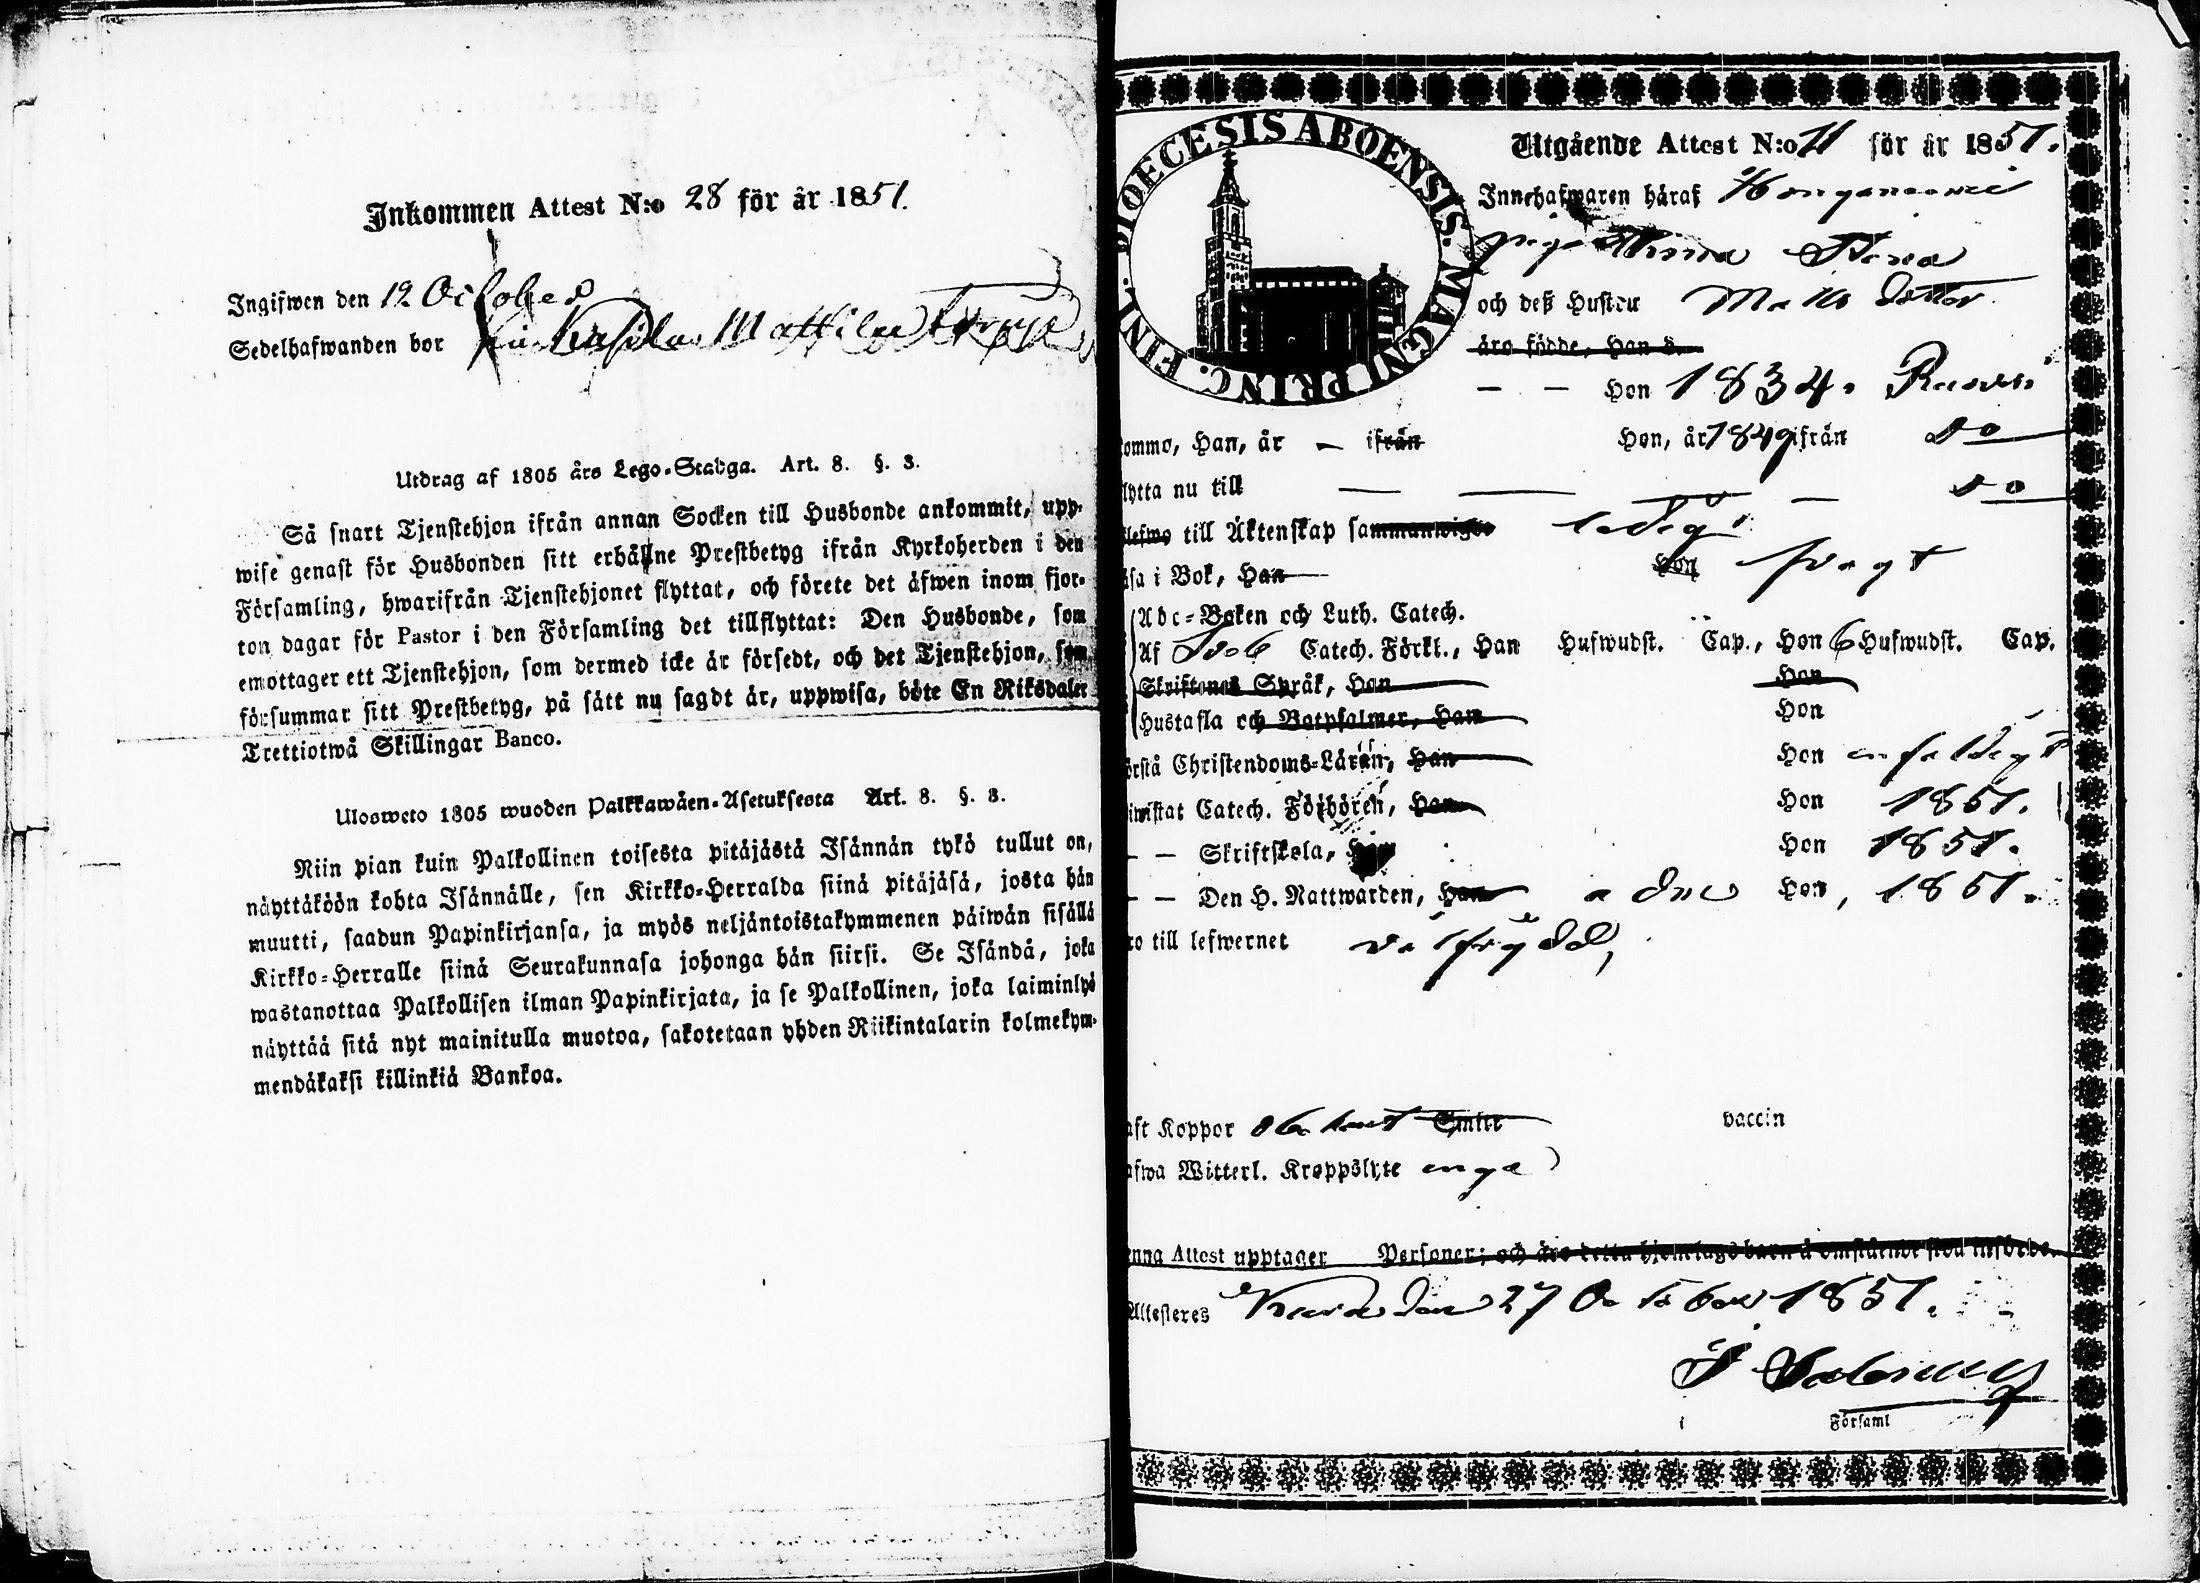 Inkommen Attest N:o 28 för år 1851.
Ingifwen den 12 October
Sedelhafwanden bor
Utdrag af 1805 års Lego-Stadga. Art. 8. §. 3.
Så snart Tjenstehjon ifrån annan Socken till Husbonde ankommit, upp-
wise genast för Husbonden sitt erhållne Prestbetyg ifrån Kyrkoherden i den
Församling, hwarifrån Tjenstehjonet flyttat, och förete det äfwen inom fjor-
ton dagar för Pastor i den Församling det tillflyttat: Den Husbonde, som
emottager ett Tjenstehjon, som dermed icke är försedt, och det Tjenstehjon, som
försummar sitt Prestbetyg, på sätt nu sagdt är, uppwisa, böte En Riksdaler
Trettiotwå Skillingar Banco.
Ulosweto 1805 wuoden Palkkawäen-Asetuksesta Art. 8. §. 3.
Niin pian kuin Palkollinen toisesta pitäjästä Isännän tykö tullut on,
näyttäköön kohta Isännälle, sen Kirkko-Herralda siinä pitäjäsä, josta hän
muutti, saadun Papinkirjansa, ja myös neljäntoistakymmenen päiwän sisällä
Kirkko-Herralle siinä Seurakunnasa johonga hän siirsi. Se Isändä, joka
wastanottaa Palkollisen ilman Papinkirjata, ja se Palkollinen, joka laiminlyö
näyttää sitä nyt mainitulla muotoa, sakotetaan yhden Riikintalarin kolmekym-
mendäkaksi killinkiä Bankoa.
DIOECESIS ABOENSIS. MAGNI PRINC. FINL.
Utgående Attest N:o 11 för år 1851.
Innehafwaren häraf
pig Stina
och deß Hustru Matts dotter
äro födde, Han d.
— — Hon 1834.
kommo, Han, år — ifrån Hon, år 1849 ifrån do
flytta nu till — — — do
blefwo till Äktenskap sammanwigde ledig
läsa i Bok, Han Hon swagt
Abc-Boken och Luth. Catech.
Af Catech. Förkl., Han Hufwudst. Cap., Hon 6 Hufwudst. Cap.
Skriftenes Språk, Han Hon
Hustafla och Botpsalmer, Han Hon
förstå Christendoms-Läran, Han Hon enfaldigt
biwistat Catech. Förhören, Han Hon 1851.
— — Skriftskola, Han Hon 1851.
— — Den H. Nattwarden, Han Hon, 1851.
äro till lefwernet
haft Koppor obekant Smitt vaccin
hafwa Witterl. Kroppslyte inga
Denna Attest upptager Personer; och äro detta hjonelags barn å omstående sida införde.
Attesteres den 27 October 1851.
i Församl